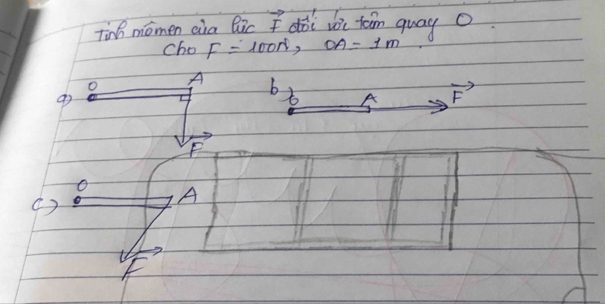 Tính mômen của lực F đối với tâm quay O.
Cho F = 100N, OA = 1m.
a) O A F
b) O A F
c) O A F